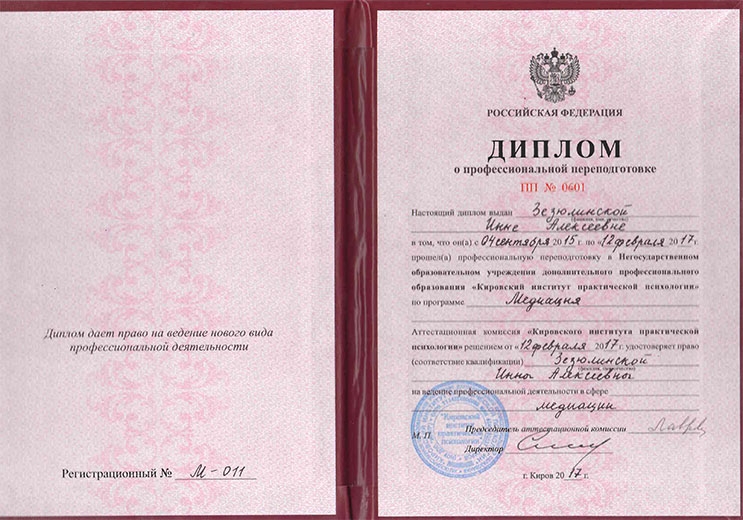 Диплом дает право на ведение нового вида
профессиональной деятельности
Регистрационный № М-011
РОССИЙСКАЯ ФЕДЕРАЦИЯ
ДИПЛОМ
о профессиональной переподготовке
ПП № 0601
Настоящий диплом выдан Зезюлинской
(фамилия, имя, отчество)
Инне Алексеевне
в том, что он(а) с 04 сентября 2015 г. по «12» февраля 2017 г.
прошел(а) профессиональную переподготовку в Негосударственном
образовательном учреждении дополнительного профессионального
образования «Кировский институт практической психологии»
по программе Медиация
Аттестационная комиссия «Кировского института практической
психологии» решением от «12» февраля 2017 г. удостоверяет право
(соответствие квалификации) Зезюлинской
(фамилия, имя, отчество)
Инны Алексеевны
на ведение профессиональной деятельности в сфере
медиации
Председатель аттестационной комиссии
М. П.
Директор
"Кировский
институт
практической
психологии"
г. Киров 2017 г.